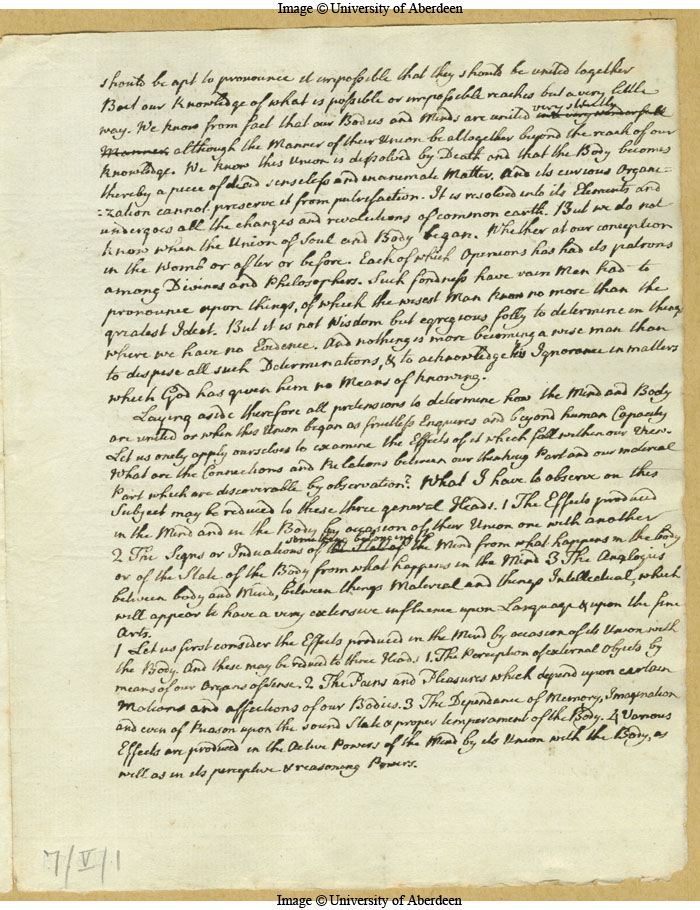 Image © University of Aberdeen
should be apt to pronounce it impossible that they should be united together
But our Knowledge of what is possible or impossible reaches but a very little
way. We know from fact that our Bodies and Minds are united very strictly
Manner, although the Manner of their Union be altogether beyond the reach of our
Knowledge. We know this Union is dissolved by Death and that the Body becomes
thereby a piece of dead senseless and inanimate Matter, And its curious Organi=
=zation cannot preserve it from putrifaction. It is resolved into its Elements and
undergoes all the changes and revolutions of common earth. But we do not
know when the Union of Soul and Body began. Whether at our conception
in the Womb or after or before. Each of which Opinions has had its patrons
among Divines and Philosophers. Such fondness have vain Men had to
pronounce upon things, of which the wisest Man know no more than the
greatest Ideot. But it is not Wisdom but egregious folly to determine in things
where we have no Evidence. And nothing is more becoming a wise man than
to despise all such Determinations, & to acknowledge his Ignorance in matters
which God has given him no Means of knowing.
Laying aside therefore all pretensions to determine how the Mind and Body
are united or when this Union began as fruitless Enquires and beyond human Capacity
Let us onely apply ourselves to examine the Effects of it which fall within our View.
What are the Connections and Relations between our thinking Part and our material
Part which are discoverable by observation? What I have to observe on this
Subject may be reduced to these three general Heads. 1 The Effects produced
in the Mind and in the Body by occasion of their Union one with another
2 The Signs or Indications of something belonging to the Mind from what happens in the body
or of the State of the Body from what happens in the Mind 3 The Analogies
between body and Mind, between things Material and things Intellectual, which
will appear to have a very extensive influence upon Language & upon the fine
Arts.
1 Let us first consider the Effects produced in the Mind by occasion of its Union with
the Body. And these may be reduced to three Heads 1. The Perception of external Objects by
means of our Organs of Sense. 2. The Pains and Pleasures which depend upon certain
Motions and affections of our Bodies. 3 The Dependance of Memory, Imagination
and even of Reason upon the sound State & proper temperament of the Body. 4 Various
Effects are produced in the Active Powers of the Mind by its Union with the Body, as
well as in its perceptive & reasoning Powers.
7/V/1
Image © University of Aberdeen